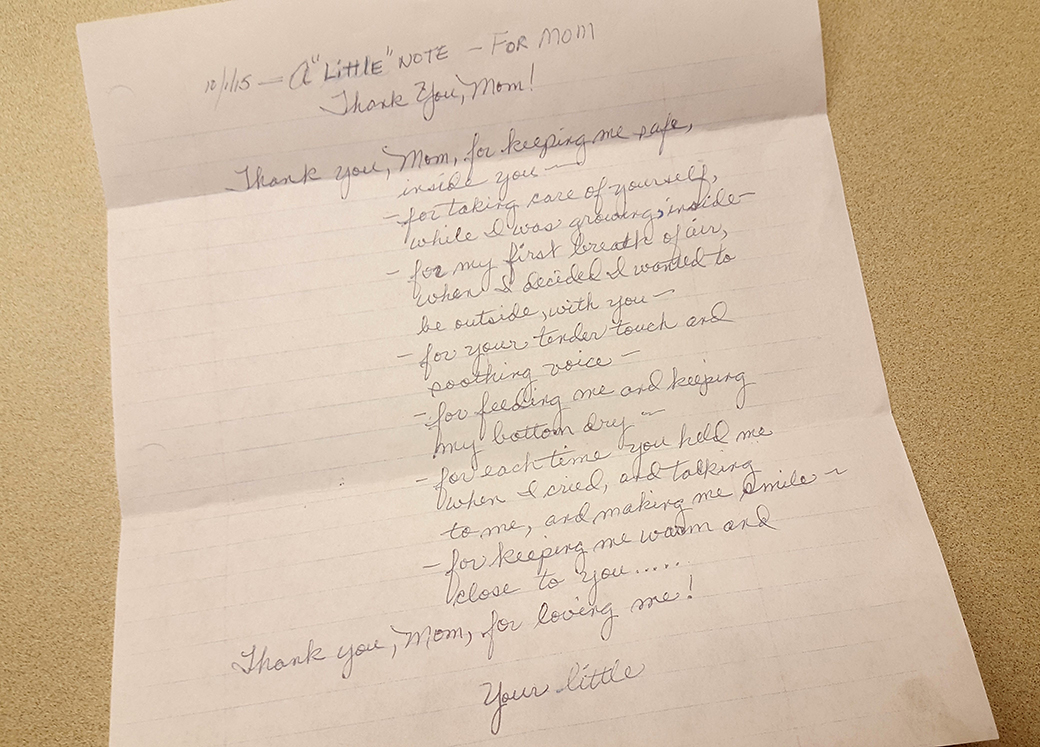 10/1/15 — A "LittLE" NOTE - FOR MOM
Thank You, Mom!
Thank you, Mom, for keeping me safe,
inside you —
- for taking care of yourself,
while I was growing, inside -
- for my first breath of air,
when I decided I wanted to
be outside, with you —
- for your tender touch and
soothing voice —
- for feeding me and keeping
my bottom dry ~
- for each time you held me
when I cried, and talking
to me, and making me smile ~
- for keeping me warm and
close to you.....
Thank you, Mom, for loving me!
Your little